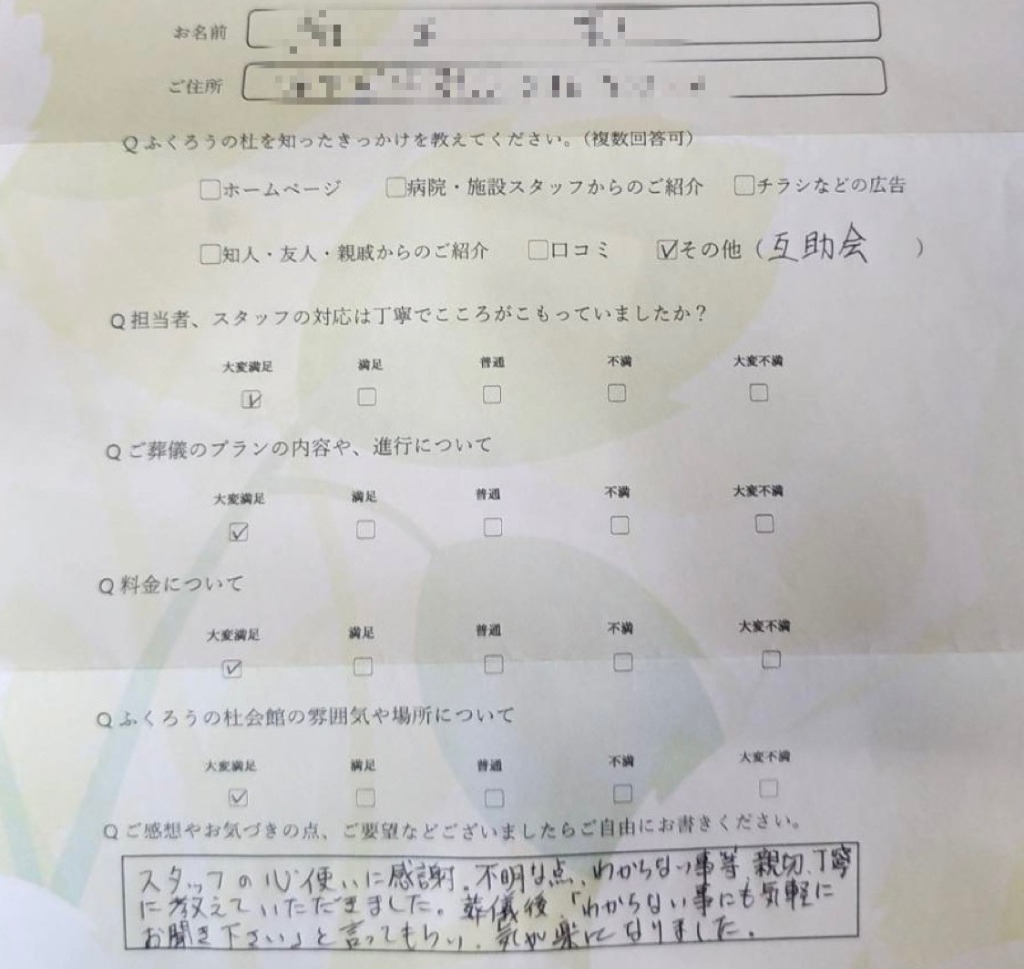 お名前
ご住所
Q ふくろうの杜を知ったきっかけを教えてください。(複数回答可)
ホームページ 病院・施設スタッフからのご紹介 チラシなどの広告
知人・友人・親戚からのご紹介 口コミ その他 (互助会)
Q 担当者、スタッフの対応は丁寧でこころがこもっていましたか?
大変満足 満足 普通 不満 大変不満
Q ご葬儀のプランの内容や、進行について
大変満足 満足 普通 不満 大変不満
Q 料金について
大変満足 満足 普通 不満 大変不満
Q ふくろうの杜会館の雰囲気や場所について
大変満足 満足 普通 不満 大変不満
Q ご感想やお気づきの点、ご要望などございましたらご自由にお書きください。
スタッフの心使いに感謝。不明な点、わからない事等 親切、丁寧
に教えていただきました。葬儀後、「わからない事にも気軽に
お聞き下さい」と言ってもらい、気が楽になりました。